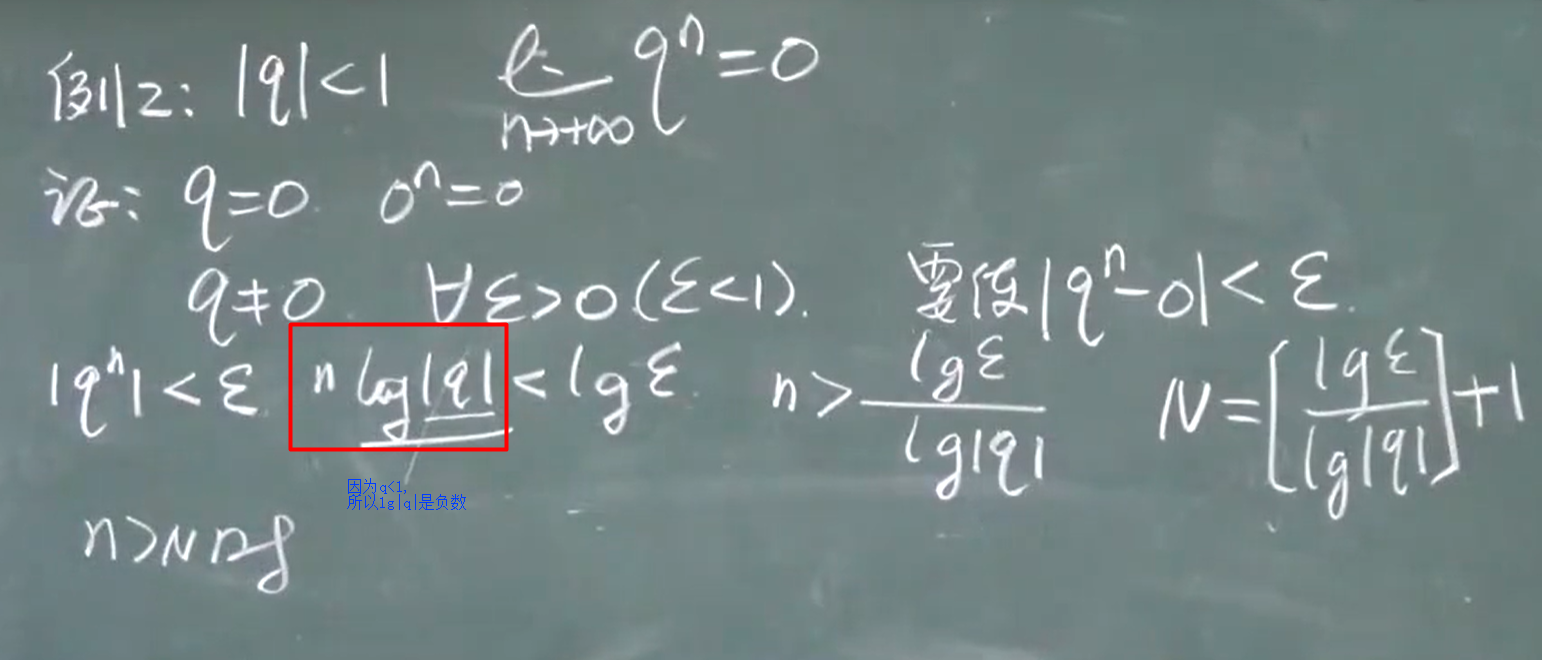 例2: |q|<1 lim n→+∞ qⁿ=0
证: q=0. 0ⁿ=0
q≠0 ∀ε>0(ε<1). 要使|qⁿ-0|<ε.
|qⁿ|<ε n log|q|<lgε. n>lgε/lg|q| N=[lgε/lg|q|]+1
因为q<1,
所以lg|q|是负数
n>N时